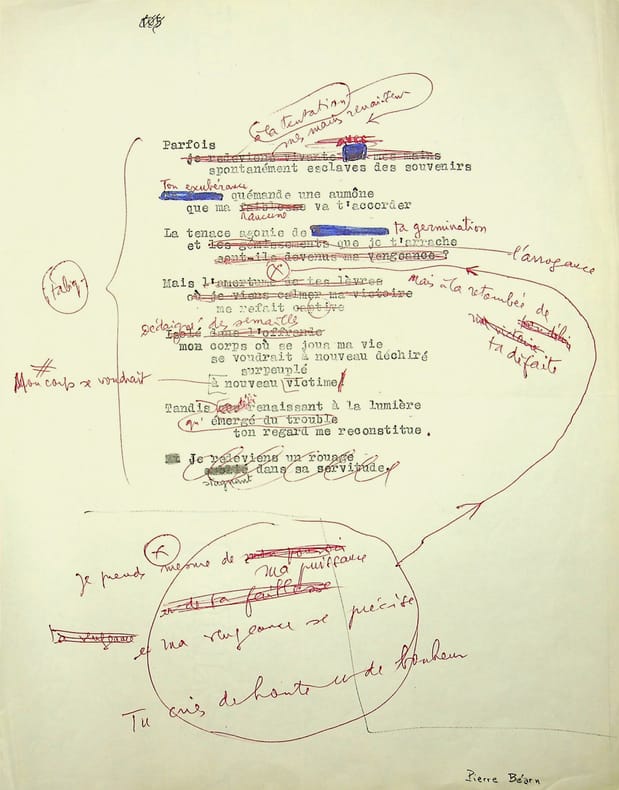 105
à la tentation
mes mains renaître
avec
Parfois
je redeviens vivante mes mains
spontanément esclaves des souvenirs
Ton exubérance
quémande une aumône
que ma faiblesse va t'accorder
rancune
La tenace agonie de ta germination
et les gémissements que je t'arrache
l'arrogance
sont-ils devenus ma vengeance ?
x
Mais l'amertume de tes lèvres
où je viens calmer ma victoire
me refait captive
Mais à la retombée de
ma victoire
ta défaite
(italiq.)
des semailles
Isolé dans l'offrande
mon corps où se joua ma vie
se voudrait à nouveau déchiré
surpeuplé
Mon corps se voudrait
à nouveau victime
Tandis renaissant à la lumière
qu' émergé du trouble
ton regard me reconstitue.
Je reviens un rouage
oublié dans sa servitude.
stagnant
x
Je prends mesure de
ma puissance
et de ta faiblesse
la vengeance
et ma vengeance se précise
Tu cries de honte et de bonheur
Pierre Béarn